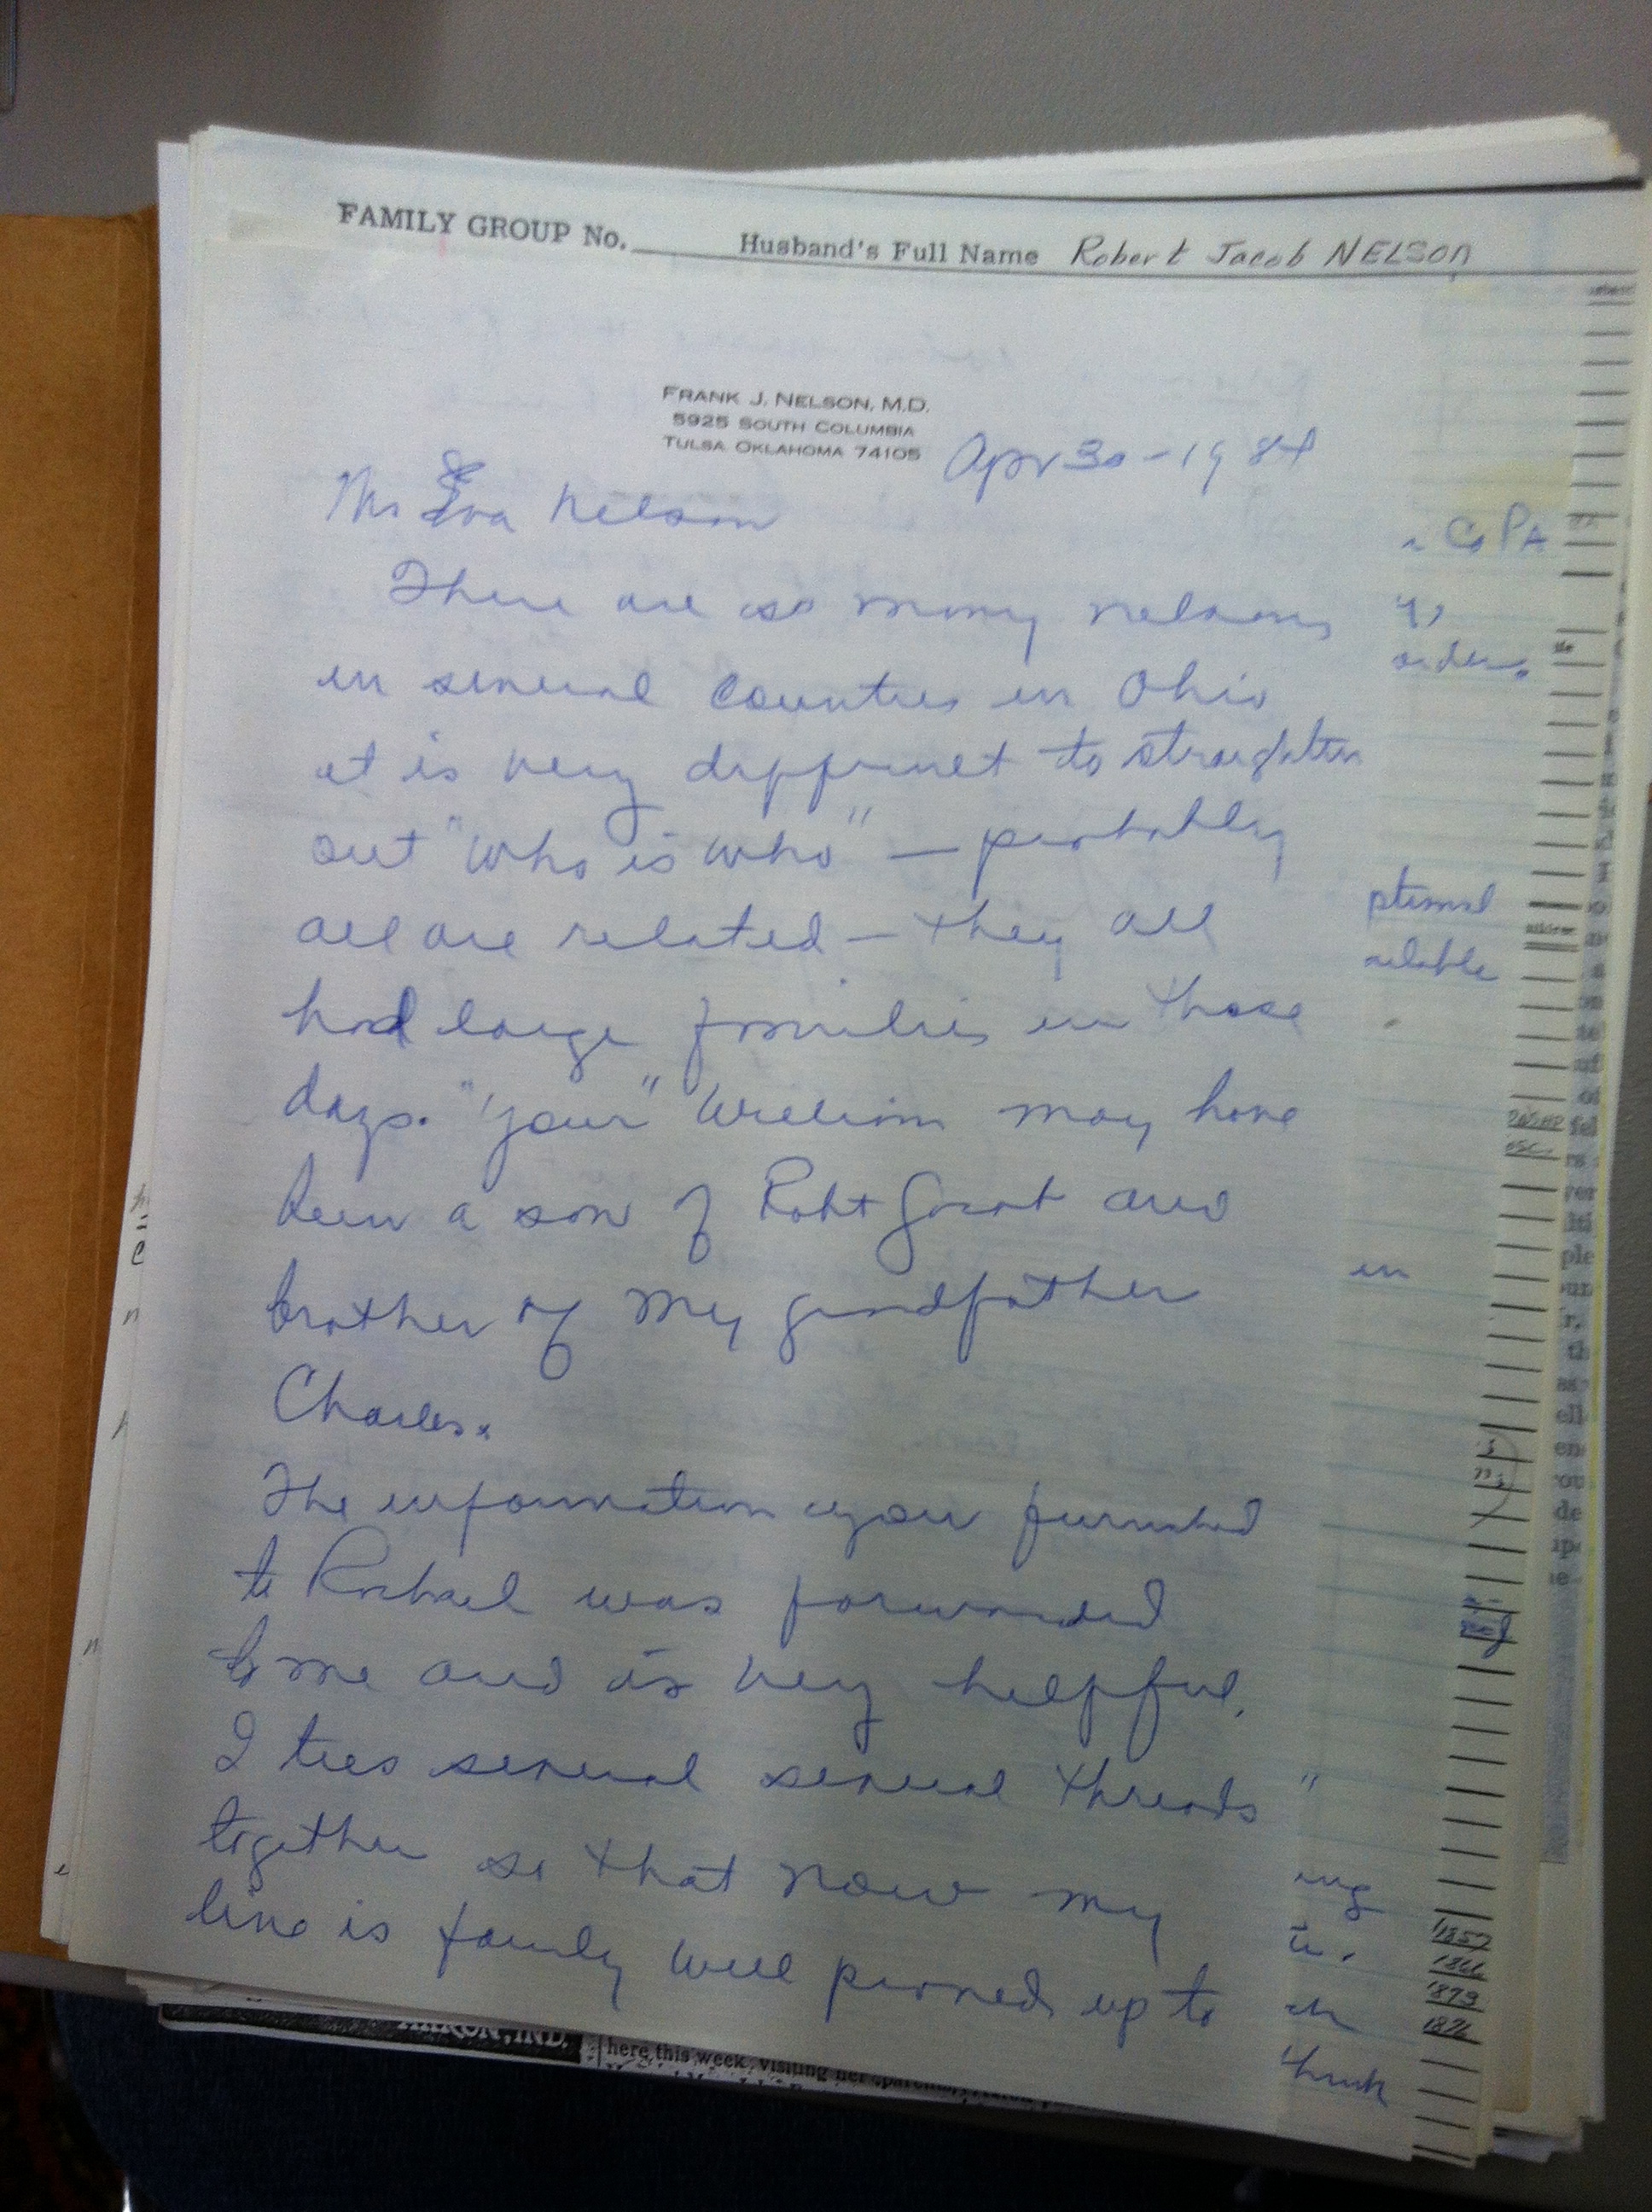 FAMILY GROUP No. Husband's Full Name Robert Jacob NELSON
FRANK J. NELSON, M.D.
5925 SOUTH COLUMBIA
TULSA OKLAHOMA 74105
Apr 30-1984
Ms Eva Nelson
There are so many nelsons
in several Counties in Ohio
it is very to straighten
out "who is who" — probably
all are related — they all
had large families in those
days. "your" William may have
been a son of Robt Grant and
brother of my grandfather
Charles.
The information you furnished
to Rachael was forwarded
to me and is very helpful.
I ties several several threads
together so that now my
line is fairly well proned up to
Co PA
orders.
ptional
ailable
in
"
ing
an
think
1857
1866
1873
1876
AKRON, IND.
here this week, visiting her parents,